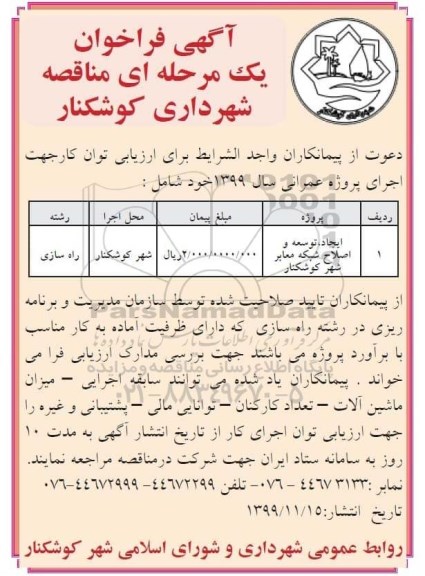 آگهی فراخوان
یک مرحله ای مناقصه
شهرداری کوشکنار
دعوت از پیمانکاران واجد الشرایط برای ارزیابی توان کارجهت
اجرای پروژه عمرانی سال ۱۳۹۹خود شامل :
ردیف پروژه مبلغ پیمان محل اجرا رشته
۱ ایجاد،توسعه و اصلاح شبکه معابر شهر کوشکنار ۲/۰۰۰/۰۰۰۰/۰۰۰ریال شهر کوشکنار راه سازی
از پیمانکاران تایید صلاحیت شده توسط سازمان مدیریت و برنامه
ریزی در رشته راه سازی که دارای ظرفیت آماده به کار مناسب
با برآورد پروژه می باشند جهت بررسی مدارک ارزیابی فرا می
خواند . پیمانکاران یاد شده می توانند سابقه اجرایی – میزان
ماشین آلات – تعداد کارکنان – توانایی مالی – پشتیبانی و غیره را
جهت ارزیابی توان اجرای کار از تاریخ انتشار آگهی به مدت ۱۰
روز به سامانه ستاد ایران جهت شرکت درمناقصه مراجعه نمایند.
نمابر :۳۱۳۳ ۴۴۶۷ - ۰۷۶- تلفن ۴۴۶۷۲۲۹۹- ۴۴۶۷۲۹۹۹-۰۷۶
تاریخ انتشار:۱۳۹۹/۱۱/۱۵
روابط عمومی شهرداری و شورای اسلامی شهر کوشکنار
ParsNamadData
پایگاه اطلاع رسانی مناقصه و مزایده
۰۲۱-۸۸۳۴۹۶۷۰-۵